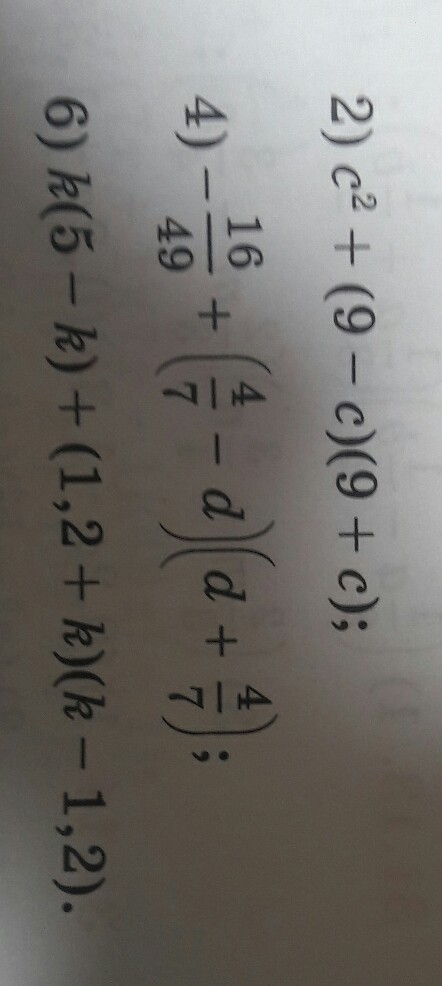 2) c² + (9 − c)(9 + c);
4) −16/49 + (4/7 − d)(d + 4/7);
6) k(5 − k) + (1,2 + k)(k − 1,2).